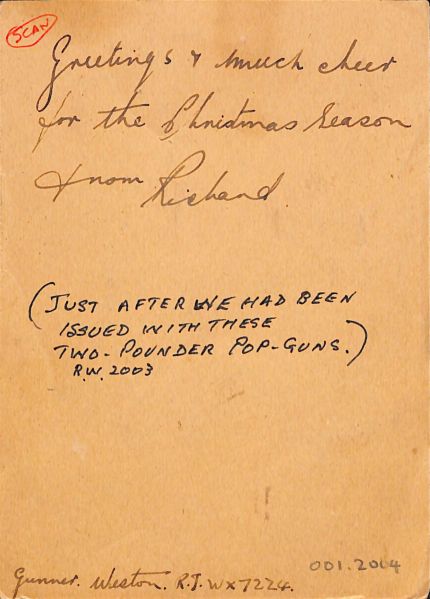 SCAN
Greetings & much cheer
for the Christmas Season
from Richard
(JUST AFTER WE HAD BEEN
ISSUED WITH THESE
TWO-POUNDER POP-GUNS.)
R.W. 2003
001.2004
Gunner. Weston. R.J. WX7224.